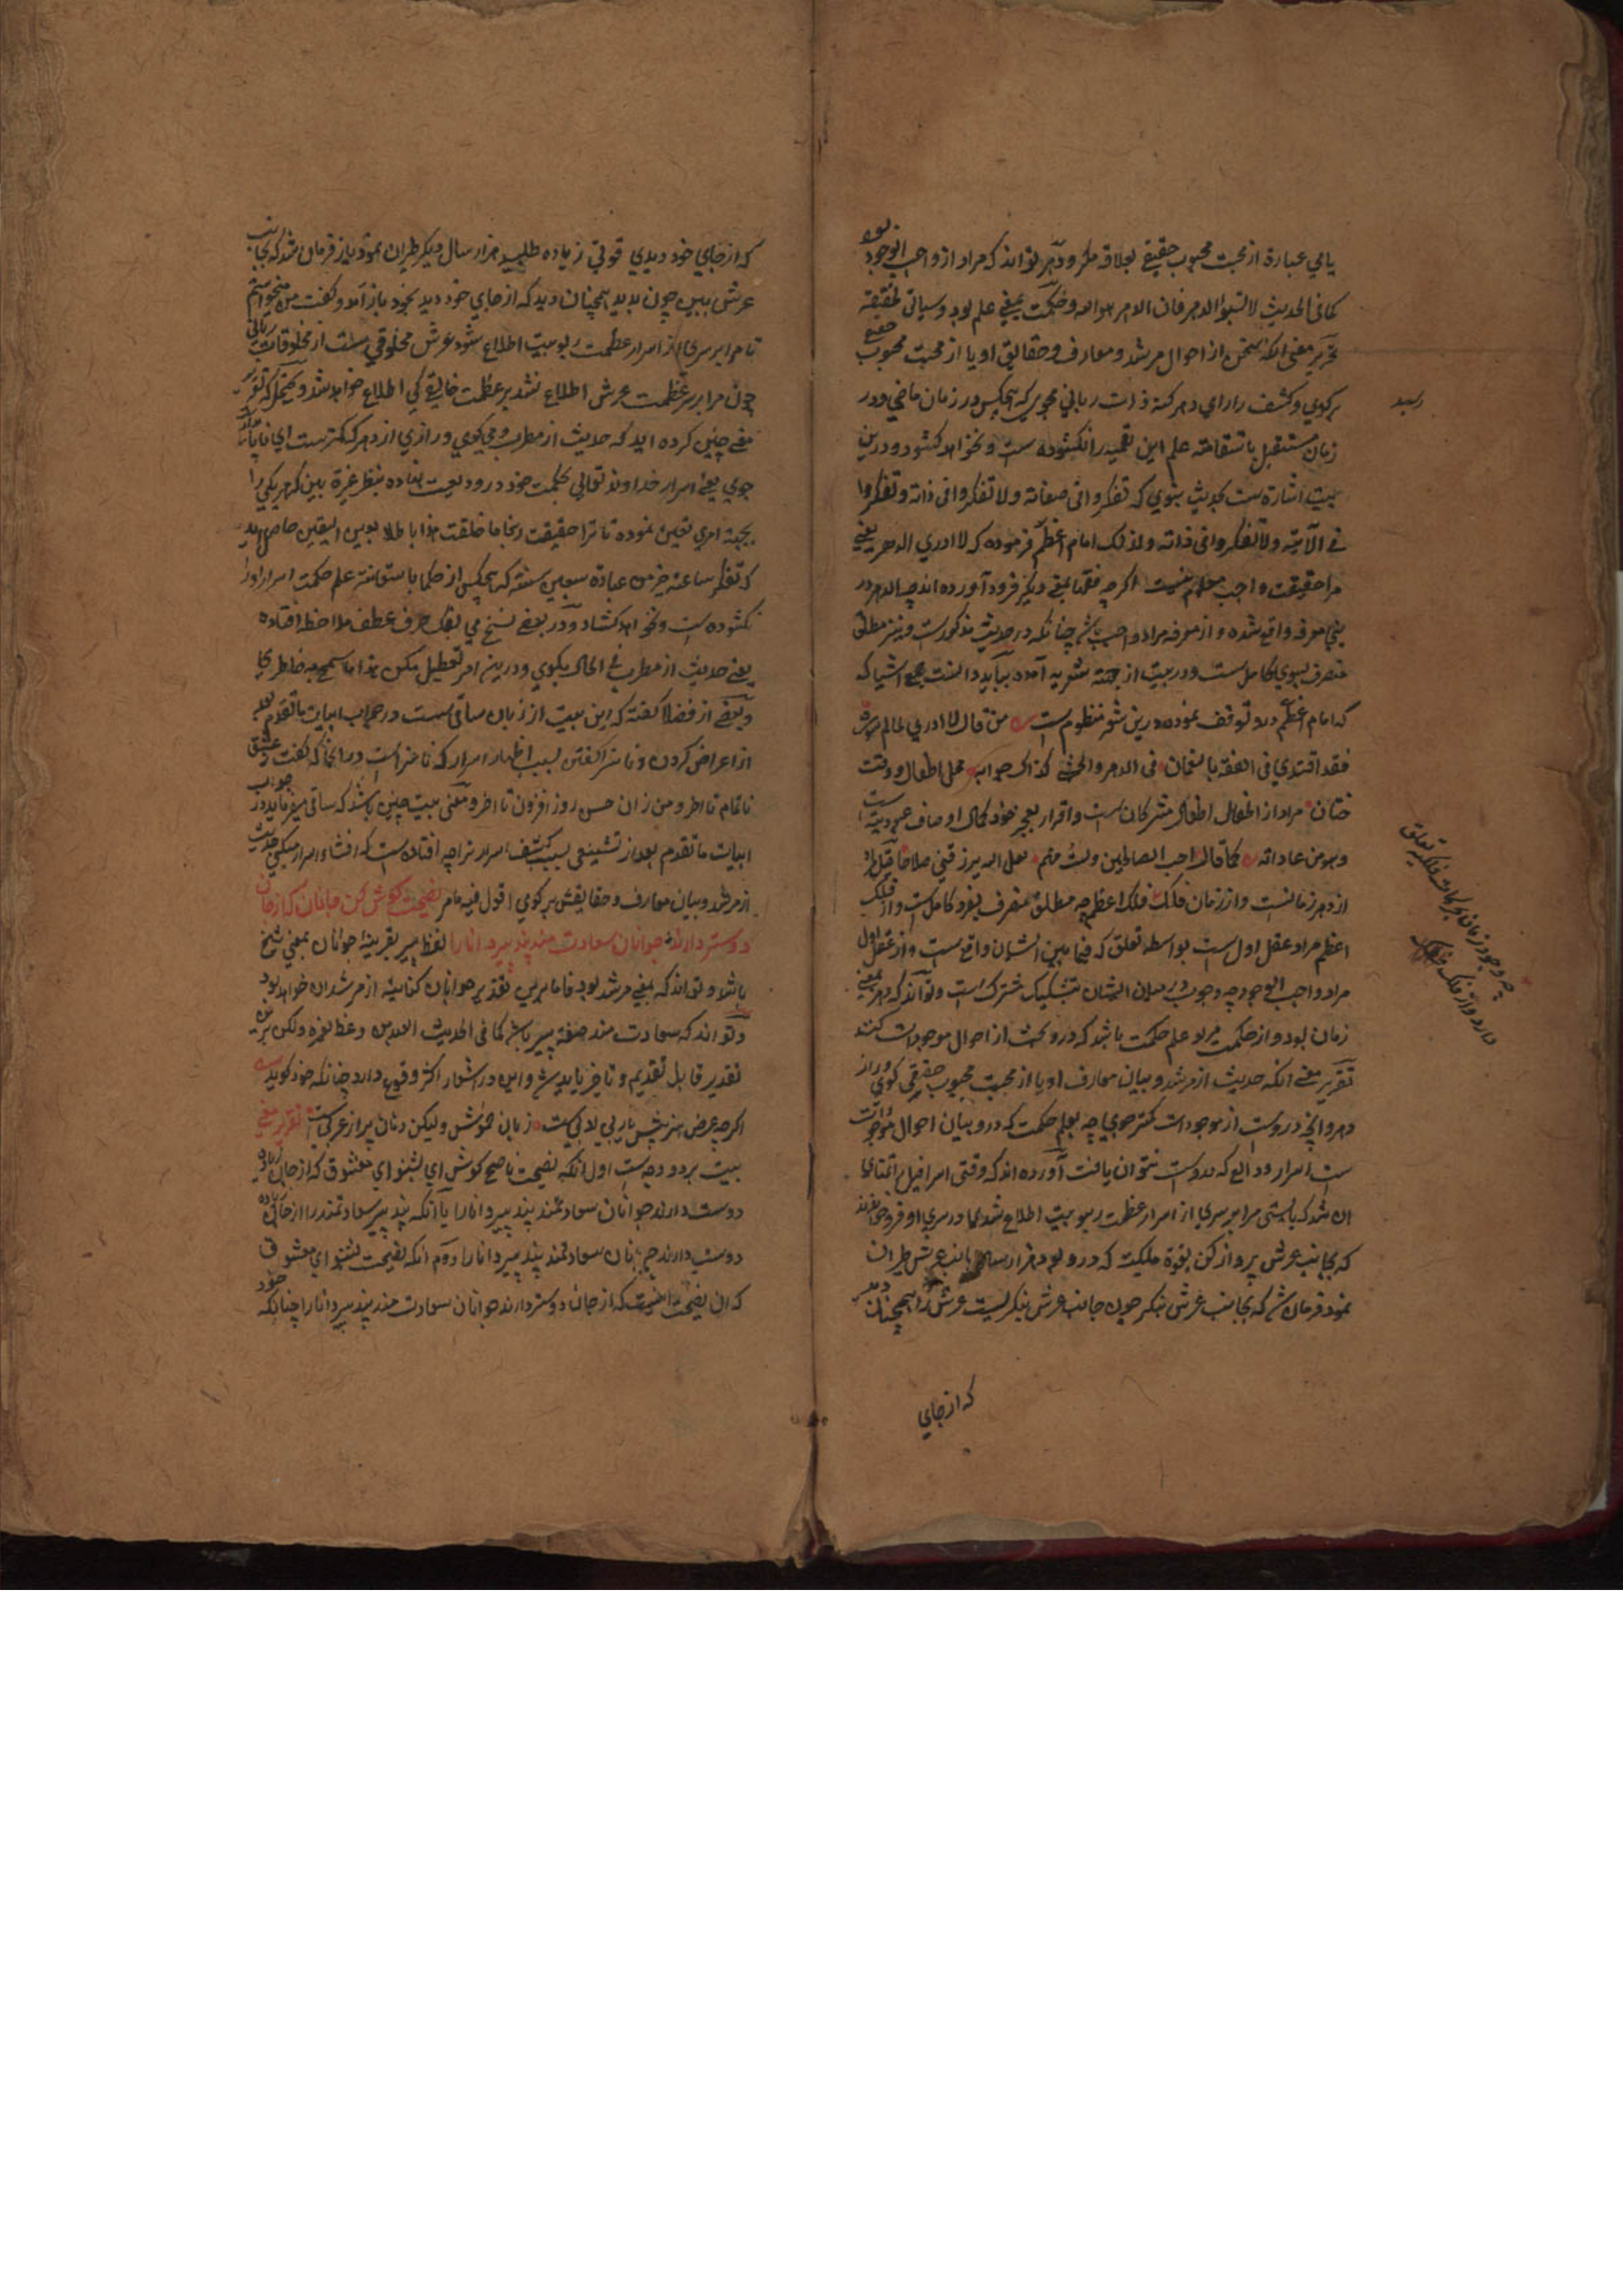 یا می عبارة از محبت محبوب حقیقی بعلاقه سکر و دهر تواند که مراد از واجب الوجود بود
کما فی الحدیث لا تسبوا الدهر فان الدهر هو الله و حکمت بمعنی علم بود و سیاتی تحقیقه
تحریر معنی آنکه سخن از احوال مرشد و معارف و حقایق او یا از محبت محبوب حقیقی
برگوی و کشف راز ای دهر کنه ذات ربانی مجوی که هیچکس در زمان ماضی و در
زمان مستقبل باستقامة علم این تعمیه را نگشوده است و نخواهد گشود و درین
بیت اشاره است بحدیث نبوی که تفکروا فی صفاته ولا تفکروا فی ذاته و تفکروا
فی الآئه ولا تفکروا فی ذاته ولذلک امام اعظم فرموده که لا ادری الدهر یعنی
مرا حقیقت واجب معلوم نیست اگرچه فقها بمعنی دیگر فرود آورده اند چه الدهر در
معرفه واقع شده و از معرفه مراد واجب باشد چنانکه در حدیث مذکور است و نیز مطلق
منصرف بسوی کامل ست و در بیت از جهة شعریه آمده بباید دانست جمیع اشیا که
که امام اعظم درو توقف نموده درین شعر منظوم ست من قال لا ادری لما لم یدره
فقد اقتدی فی الفقه بالنعمان فی الدهر والخنثی کذاک جوابه محل اطفال و وقت
ختان مراد از اطفال اطفال مشرکان است و اقرار بعجز خود کمال اوصاف عبودیت ست
وهو من عاداته کما قال احب الصالحین ولست منهم لعل الله یرزقنی صلاحا قیل مراد
از دهر زمانست و از زمان فلک فلک اعظم چه مطلق منصرف بفرد کامل ست و از فلک
اعظم مراد عقل اول ست بواسطه تعلق که فیما بین ایشان واقع ست و از عقل اول
مراد واجب الوجود چه وجوب در میان ایشان بتشکیک مشترک است و تواند که دهر بمعنی
زمان بود و از حکمت مراد علم حکمت باشد که درو بحث از احوال موجودات کنند
تقریر معنی آنکه حدیث از مرشد و بیان معارف او یا از محبت محبوب حقیقی گوی و راز
دهر و آنچه دروست از موجودات کمتر جوی چه بعلم حکمت که درو بیان احوال موجودات
ست اسرار ودایع که دروست نتوان یافت آورده اند که وقتی اسرافیل را تمنای
آن شد که بایستی مرا بر سری از اسرار عظمت ربوبیت اطلاع شدی در سر او فرو خواندند
که بجانب عرش پرواز کن بقوة ملکیت که درو بود هزار سال بجانب عرش طیران
نمود فرمان شد که بجانب عرش بنگر چون جانب عرش بنگریست عرش را همچنان دید
که از جای
رسید
چه وجود زمان بحرکات فلکیه تعلق
دارد و از فلک فلک
که از جای خود دیدی قوتی زیاده طلبید هزار سال دیگر طیران نمود باز فرمان شد که بجانب
عرش ببین چون بدید همچنان دید که از جای خود دید بخود باز آمد و گفت من میخواستم
تا مرا بر سری از اسرار عظمت ربوبیت اطلاع شود عرش مخلوقی ست از مخلوقات ربانی
چون مرا بر سر عظمت عرش اطلاع نشد بر عظمت خالق کی اطلاع خواهد شد و یحتمل که تقریر
معنی چنین کرده آید که حدیث از مطرب و می گوی و رازی از دهر که کمترست ای نایاب
جوی یعنی اسرار خداوند تعالی بحکمت خود درو ودیعت نهاده بنظر عبرة ببین که هر یکی را
بجهة امری تعین نموده تا ترا حقیقت ربنا ما خلقت هذا باطلا بعین الیقین حاصل آید
که تفکر ساعة خیر من عبادة سبعین سنة که هیچکس از حکما باستعانة علم حکمت اسرار او را
نگشوده ست و نخواهد گشاد و در بعضی نسخ می بفک حرف عطف ملاحظه افتاده
یعنی حدیث از مطرب فی الحال بگوی و درین امر تعطیل مکن هذا ما سمح به خاطری
و بعضی از فضلا گفته که این بیت از زبان ساقی ست در جواب ابیات ما تقدم بعد
از اعراض کردن و ناسزا گفتن بسبب اظهار اسرار که ناسزا است در آنجا که گفت ز عشق
ناتمام تا آخر و من زان حسن روز افزون تا آخر و معنی بیت چنین باشد که ساقی میفرماید در جواب
ابیات ما تقدم بعد از تشنیعی بسبب کشف اسرار ترا چه افتاده ست که افشاء اسرار میکنی حدیث
از مرشد و بیان معارف و حقایقش برگوی اقول فیه ما مر نصیحت گوش کن جانان که از جان
دوستر دارند جوانان سعادت مند پند پیر دانا را لفظ پیر بقرینه جوانان بمعنی شیخ
باشد و تواند که بمعنی مرشد بود فاما برین تقدیر جوانان کنایة از مرشدان خواهد بود
و تواند که سعادت مند صفة پیر باشد کما فی الحدیث السعید من وعظ بغیره ولکن برین
تقدیر قابل تقدیم و تاخیر باید شد و این در اشعار اکثر وقوع دارد چنانکه خود گوید
اگرچه عرض هنر پیش یار بی ادبی ست زبان خموش ولیکن دهان پر از عربی ست تقریر معنی
بیت بر دو وجه ست اول آنکه نصیحت ناصح گوش ای بشنو ای معشوق که از جان زیاده
دوست دارند جوانان سعادتمند پند پیر دانا را یا آنکه پند پیر سعادتمند را از جان زیاده
دوست دارند جوانان سعادتمند پند پیر دانا را دوم آنکه نصیحت بشنو ای معشوق
که آن نصیحت اینست که از جان دوستر دارند جوانان سعادت مند پند پیر دانا را چنانکه خود